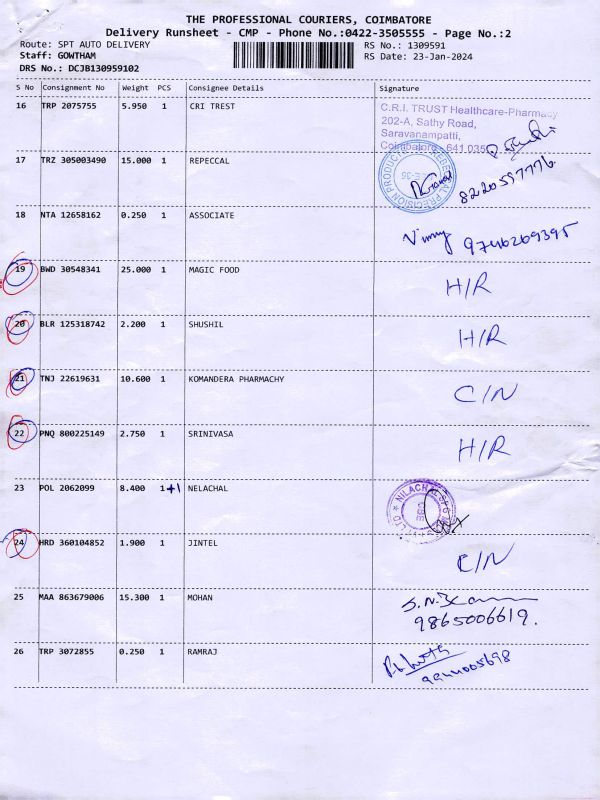 THE PROFESSIONAL COURIERS, COIMBATORE
Delivery Runsheet - CMP - Phone No.:0422-3505555 - Page No.:2
Route: SPT AUTO DELIVERY
RS No.: 1309591
Staff: GOWTHAM
RS Date: 23-Jan-2024
DRS No.: DCJB130959102
S No Consignment No Weight PCS Consignee Details Signature
16 TRP 2075755 5.950 1 CRI TREST
C.R.I. TRUST Healthcare-Pharmacy
202-A, Sathy Road,
Saravanampatti,
Coimbatore - 641 035
17 TRZ 305003490 15.000 1 REPECCAL
8220597776.
18 NTA 12658162 0.250 1 ASSOCIATE
9746269395
19 BWD 30548341 25.000 1 MAGIC FOOD H/R
20 BLR 125318742 2.200 1 SHUSHIL H/R
21 TNJ 22619631 10.600 1 KOMANDERA PHARMACHY C/N
22 PNQ 800225149 2.750 1 SRINIVASA H/R
23 POL 2062099 8.400 1+1 NELACHAL
24 HRD 360104852 1.900 1 JINTEL C/N
25 MAA 863679006 15.300 1 MOHAN
9865006619.
26 TRP 3072855 0.250 1 RAMRAJ
9944005698